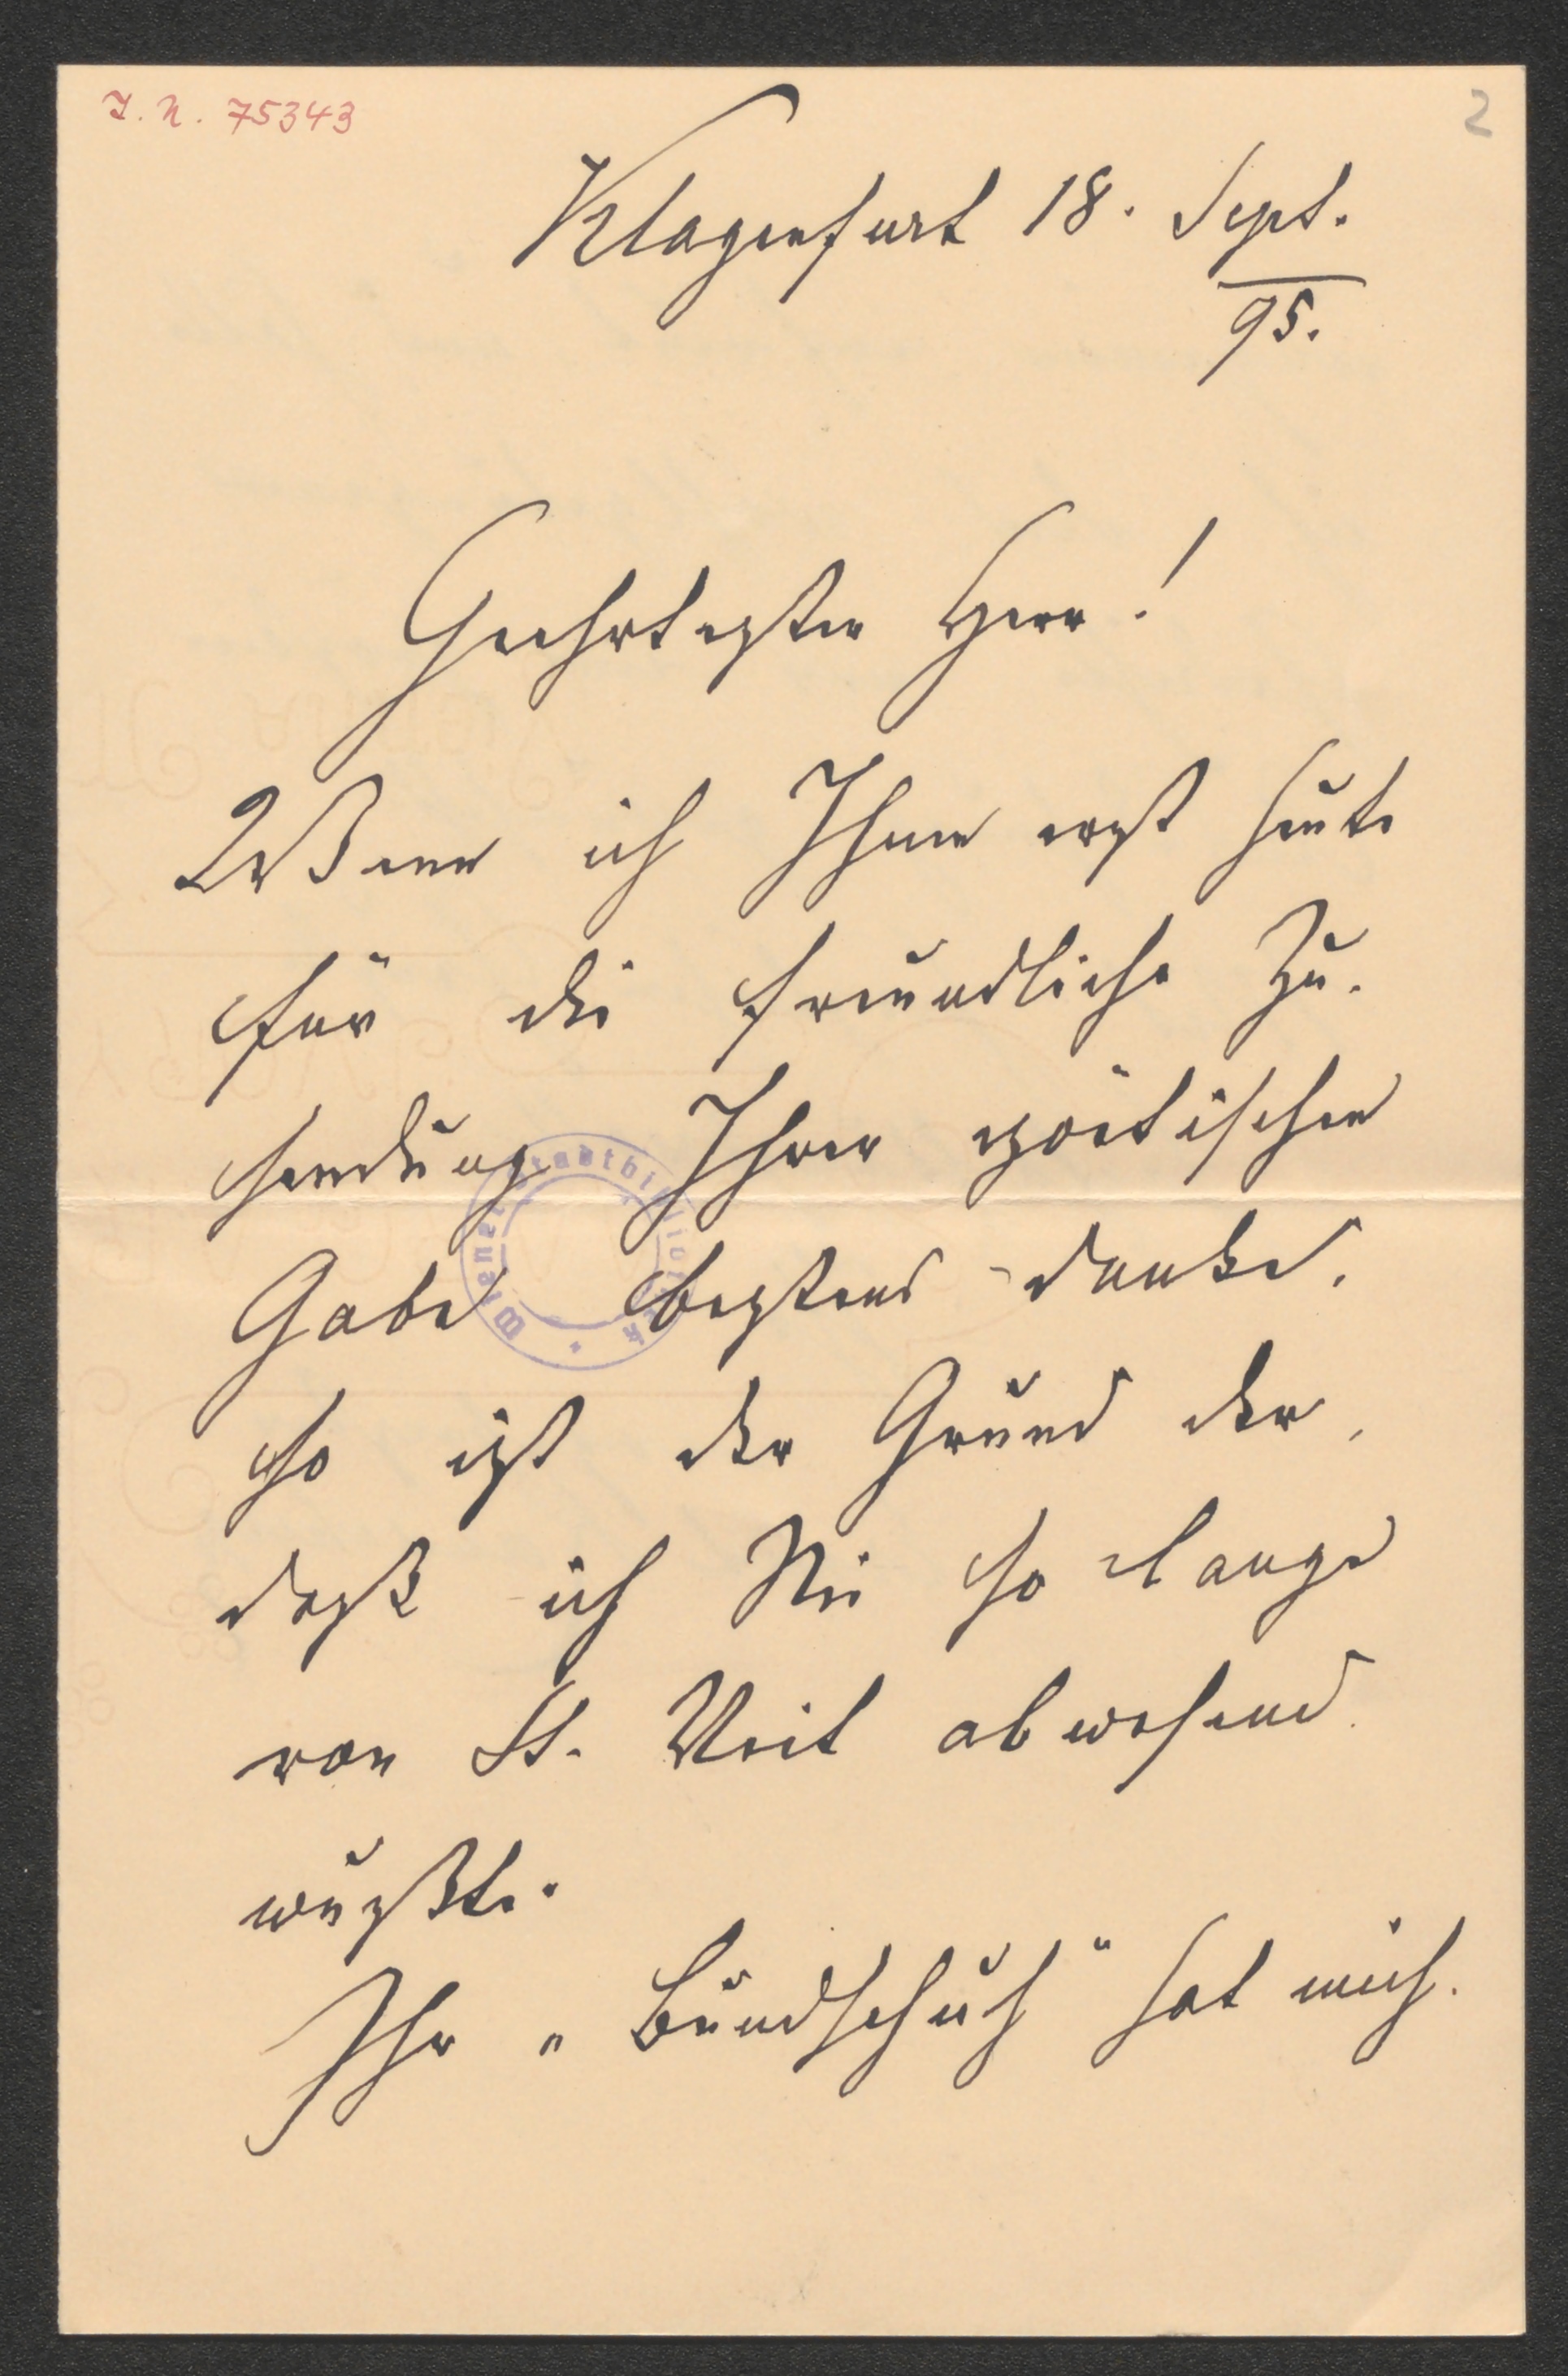 I. N. 75343
2
Klagenfurt 18. Sept.
95.
Geehrtester Herr!
Wenn ich Ihnen erst heute
für die freundliche Zu-
sendung Ihrer poëtischen
Gabe bestens danke,
so ist der Grund der,
dass ich Sie so lange
von St. Veit abwesend
wußte.
Ihr „Bundschuh" hat mich
Wiener Stadtbibliothek